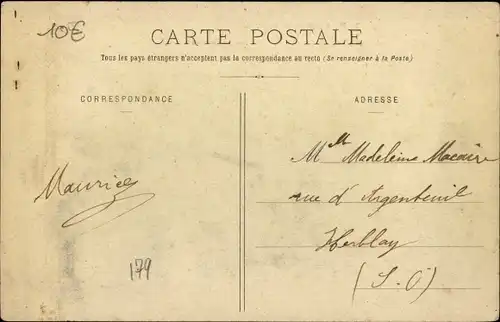 10€
CARTE POSTALE
Tous les pays étrangers n'acceptent pas la correspondance au recto (Se renseigner à la Poste)
CORRESPONDANCE
ADRESSE
Mlle Madeleine Macaire
rue d'Argenteuil
Herblay
(S. O)
Maurice
179